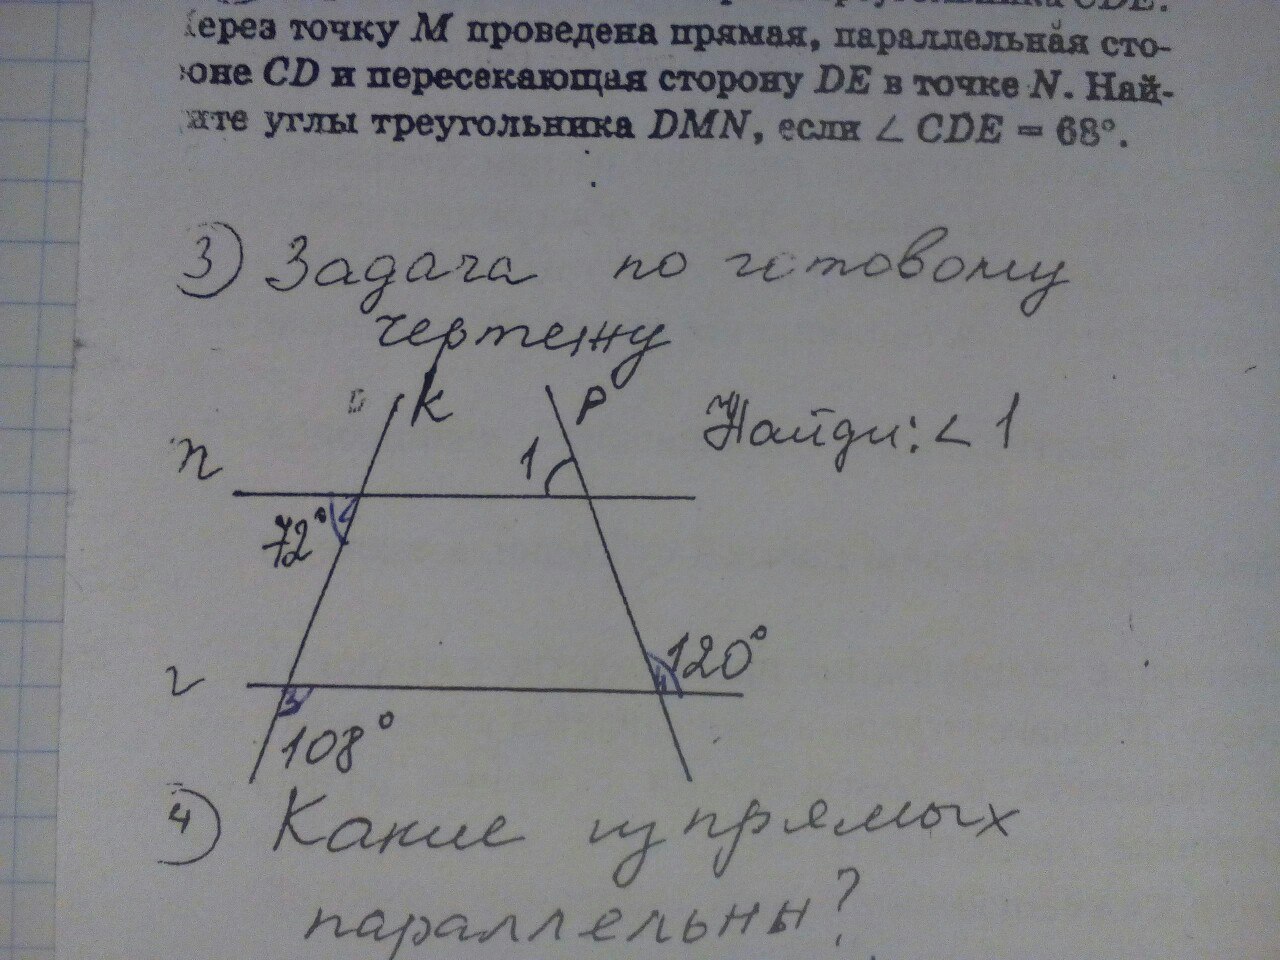 CDE.
ерез точку M проведена прямая, параллельная сто-
оне CD и пересекающая сторону DE в точке N. Най-
ите углы треугольника DMN, если ∠ CDE = 68°.
3) Задача по готовому
чертежу
K P
n 1 Найди: < 1
72°
120°
108°
4) Какие из прямых
параллельны?